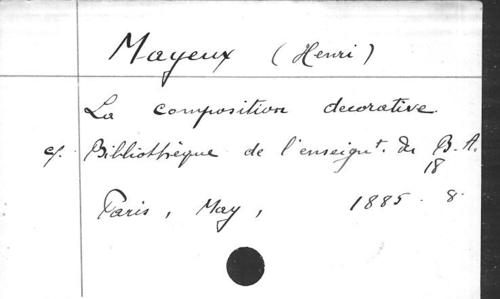 Mayeux (Henri)
La composition decorative
cf. Bibliothèque de l'enseignt. du B.A.
18
Paris, May, 1885. 8.